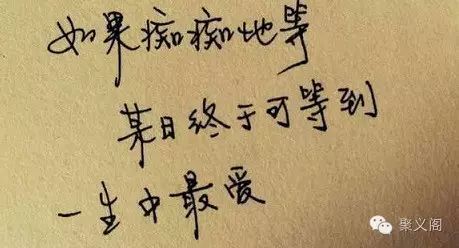 如果痴痴地等
某日终于可等到
一生中最爱
聚义阁